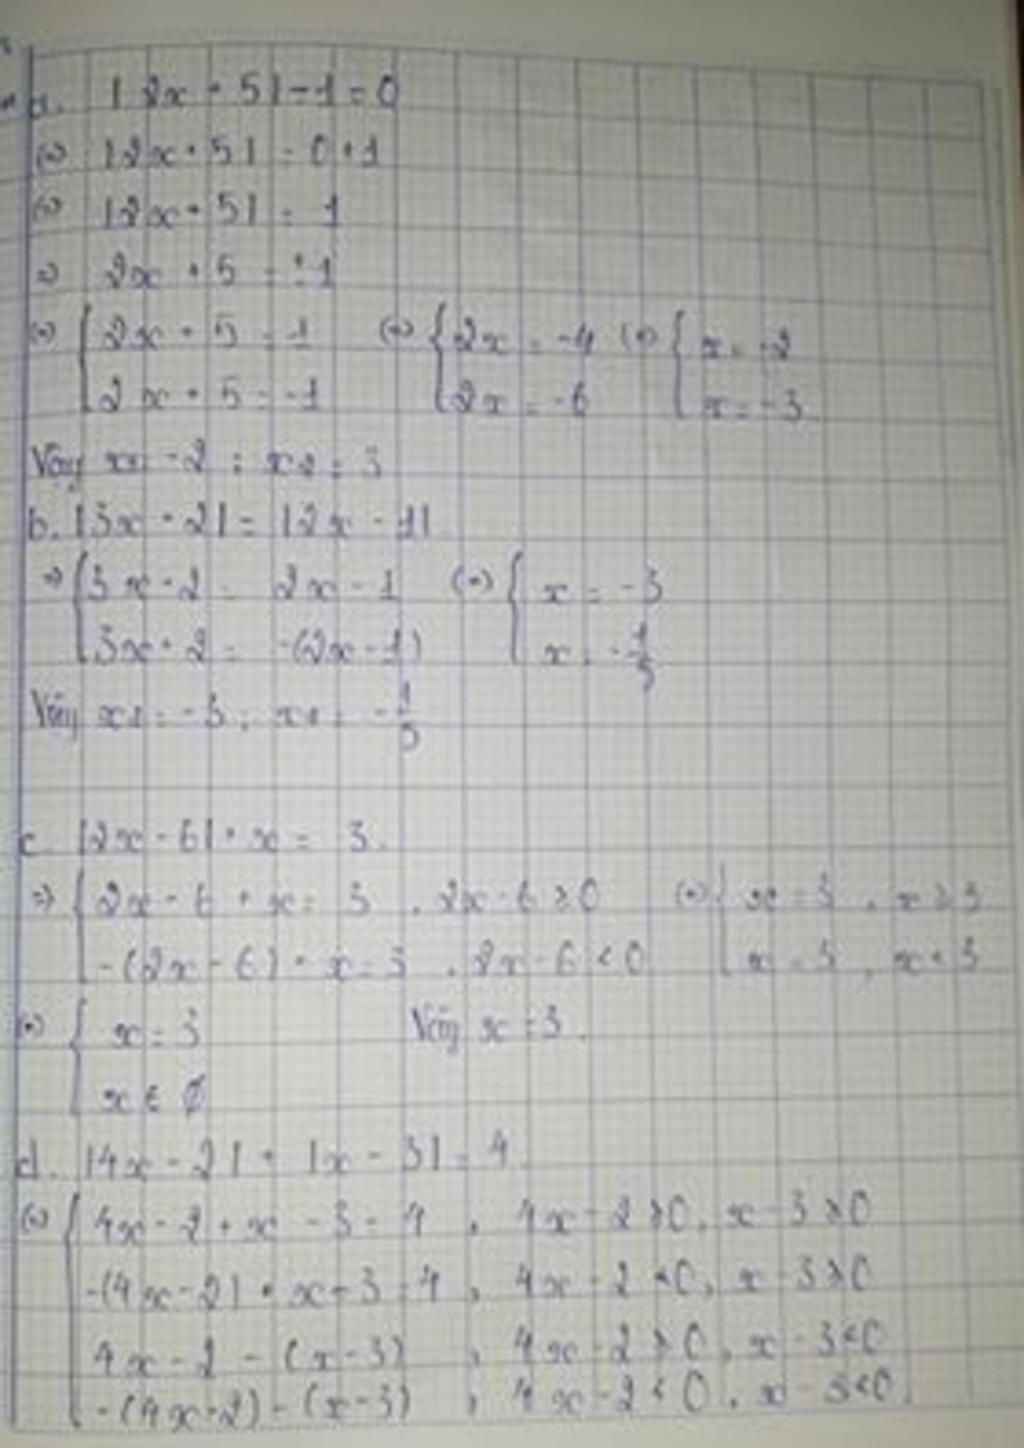 a. |2x + 5| - 1 = 0
(=) |2x + 5| = 0 + 1
(=) |2x + 5| = 1
=) 2x + 5 = ±1
(=) { 2x + 5 = 1 (=) { 2x = -4 (=) { x = -2
2x + 5 = -1 2x = -6 x = -3
Vậy x1 = -2 ; x2 = 3
b. |3x + 2| = |2x - 1|
=) { 3x + 2 = 2x - 1 (=) { x = -3
3x + 2 = -(2x - 1) x = -1/5
Vậy x1 = -3 ; x2 = -1/5
c. |2x - 6| + x = 3.
=) { 2x - 6 + x = 3 , 2x - 6 ≥ 0 (=) { x = 3 , x ≥ 3
-(2x - 6) + x = 3 , 2x - 6 < 0 x = 3 , x < 3
(=) { x = 3 Vậy x = 3.
x ∈ ∅
d. |4x - 2| + |x - 3| = 4
(=) { 4x - 2 + x - 3 = 4 , 4x - 2 ≥ 0, x - 3 ≥ 0
-(4x - 2) + x - 3 = 4 , 4x - 2 < 0, x - 3 ≥ 0
4x - 2 - (x - 3) , 4x - 2 ≥ 0, x - 3 < 0
-(4x - 2) - (x - 3) , 4x - 2 < 0, x - 3 < 0